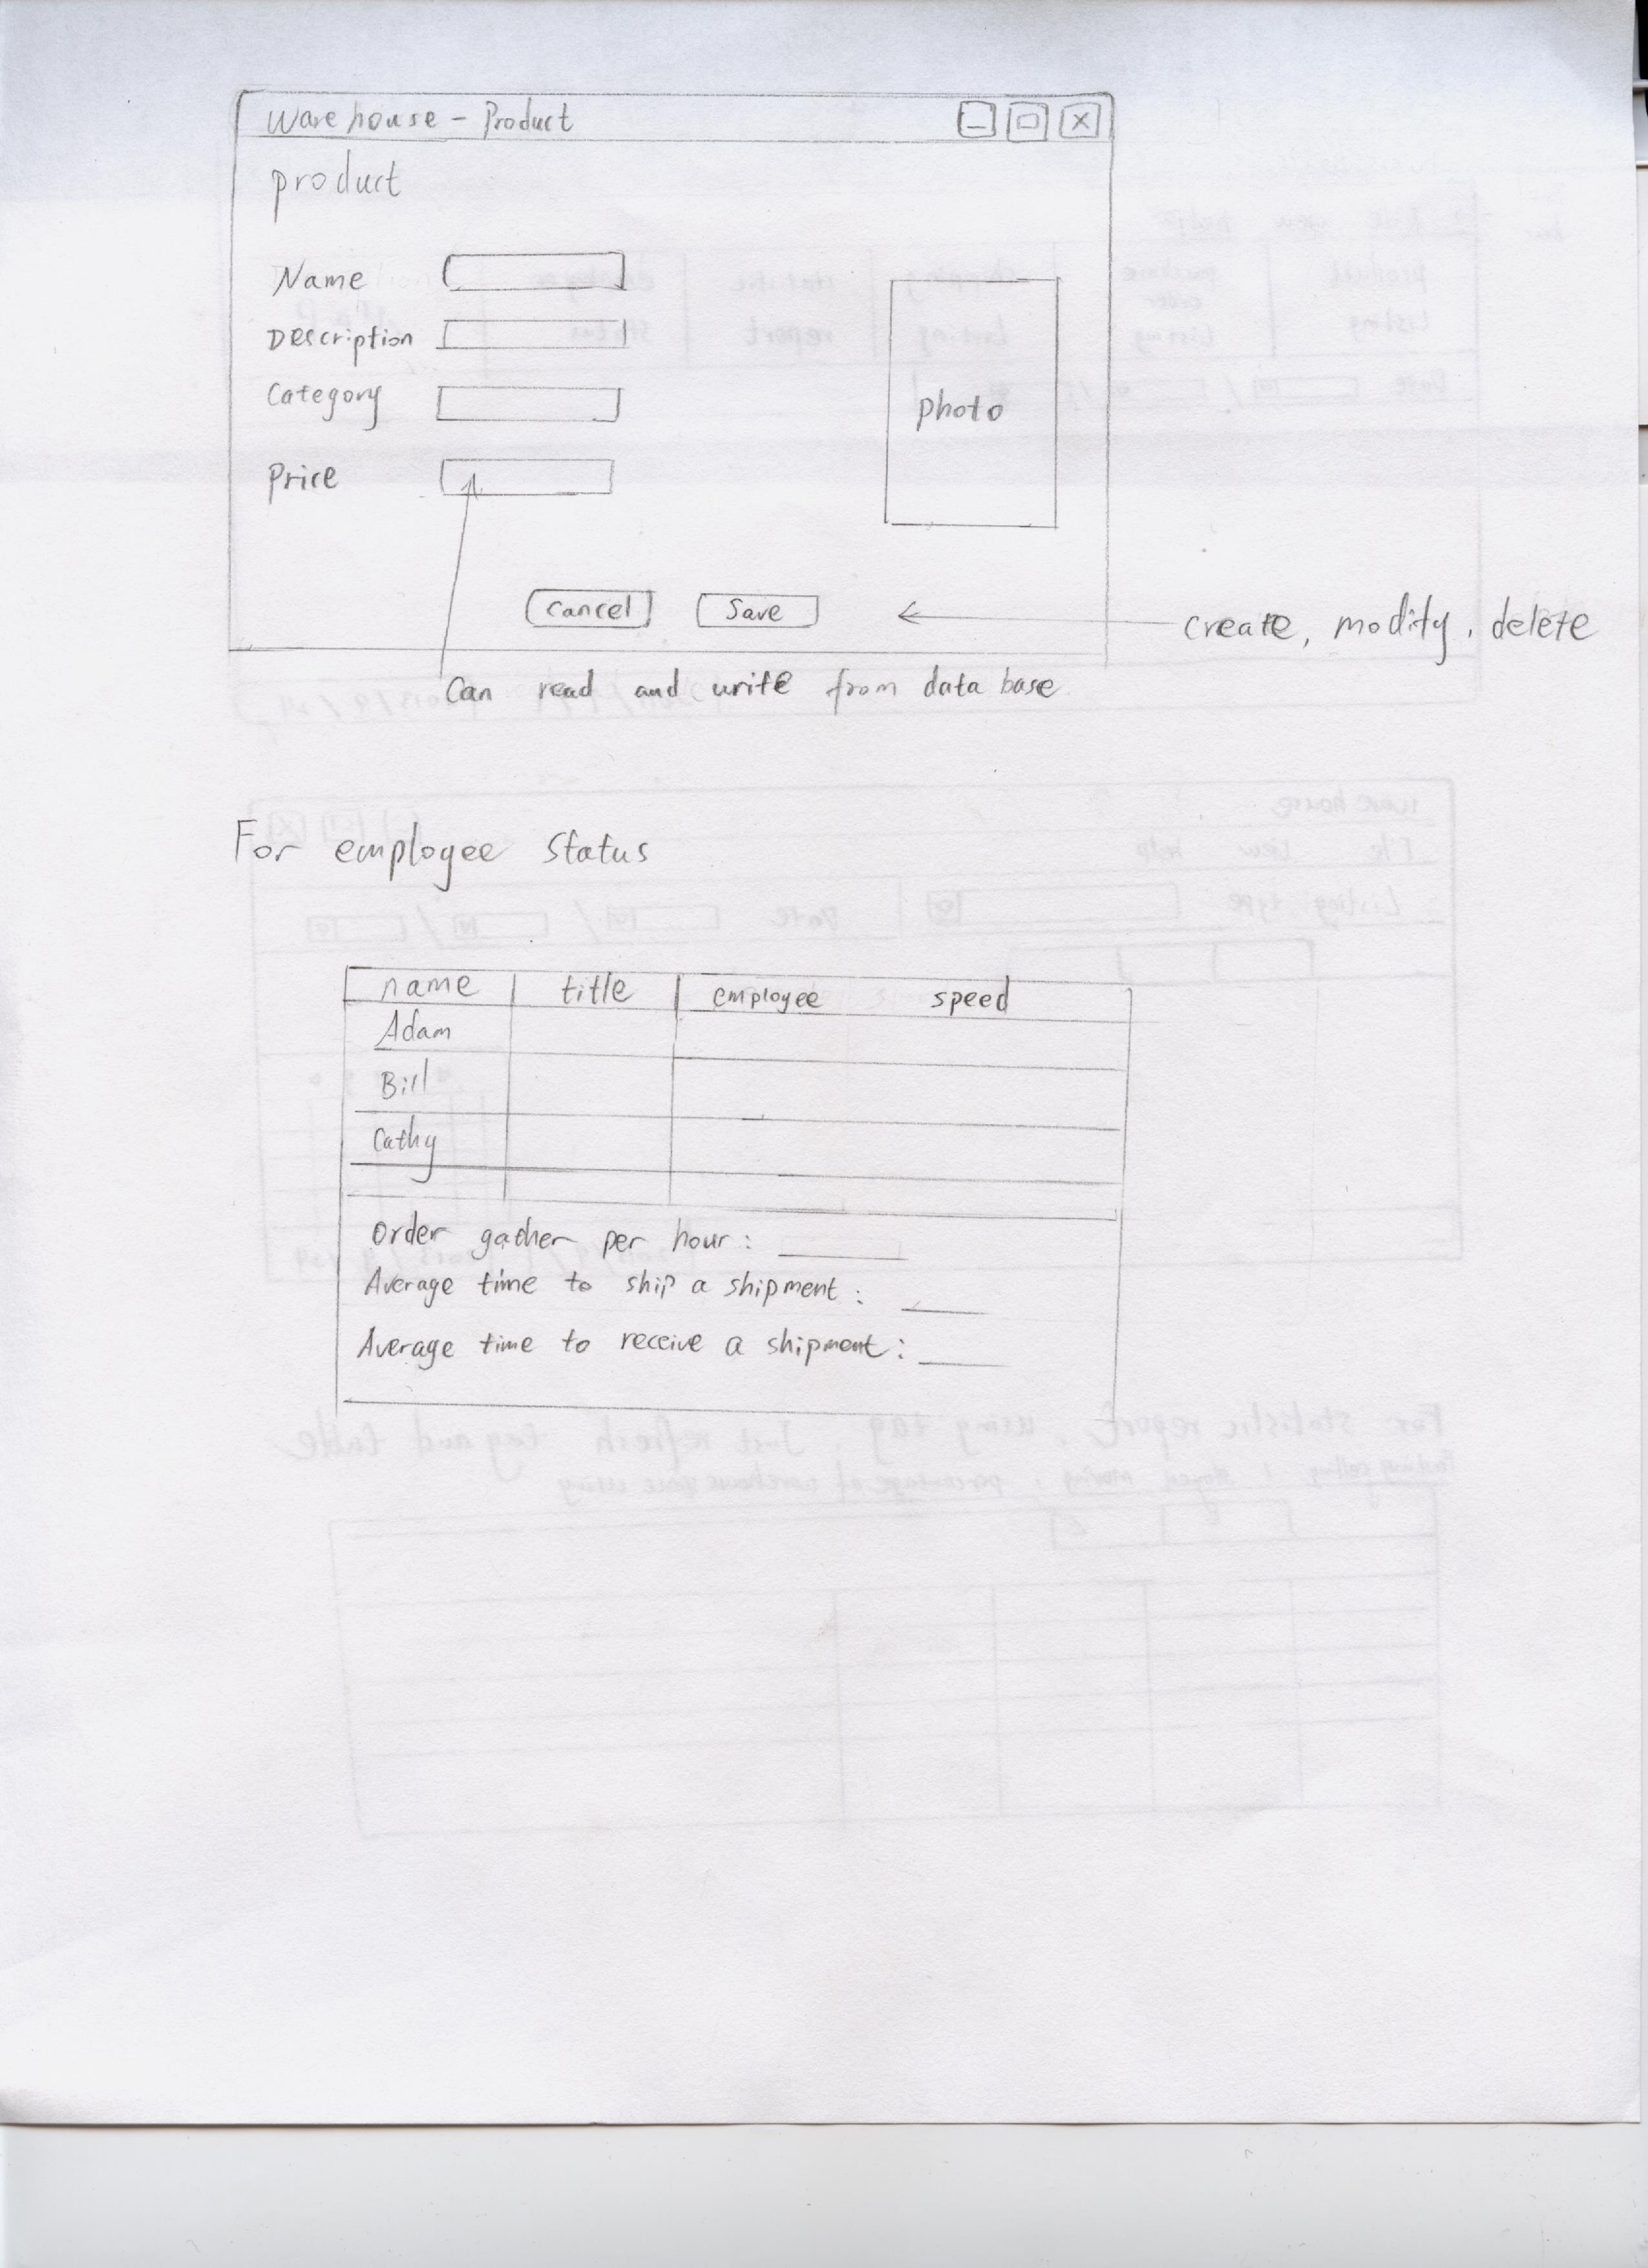 Warehouse - Product
product
Name
Description
Category
Price
photo
cancel
Save
create, modify, delete
Can read and write from data base
For employee status
name title employee speed
Adam
Bill
Cathy
Order gather per hour:
Average time to ship a shipment:
Average time to receive a shipment: